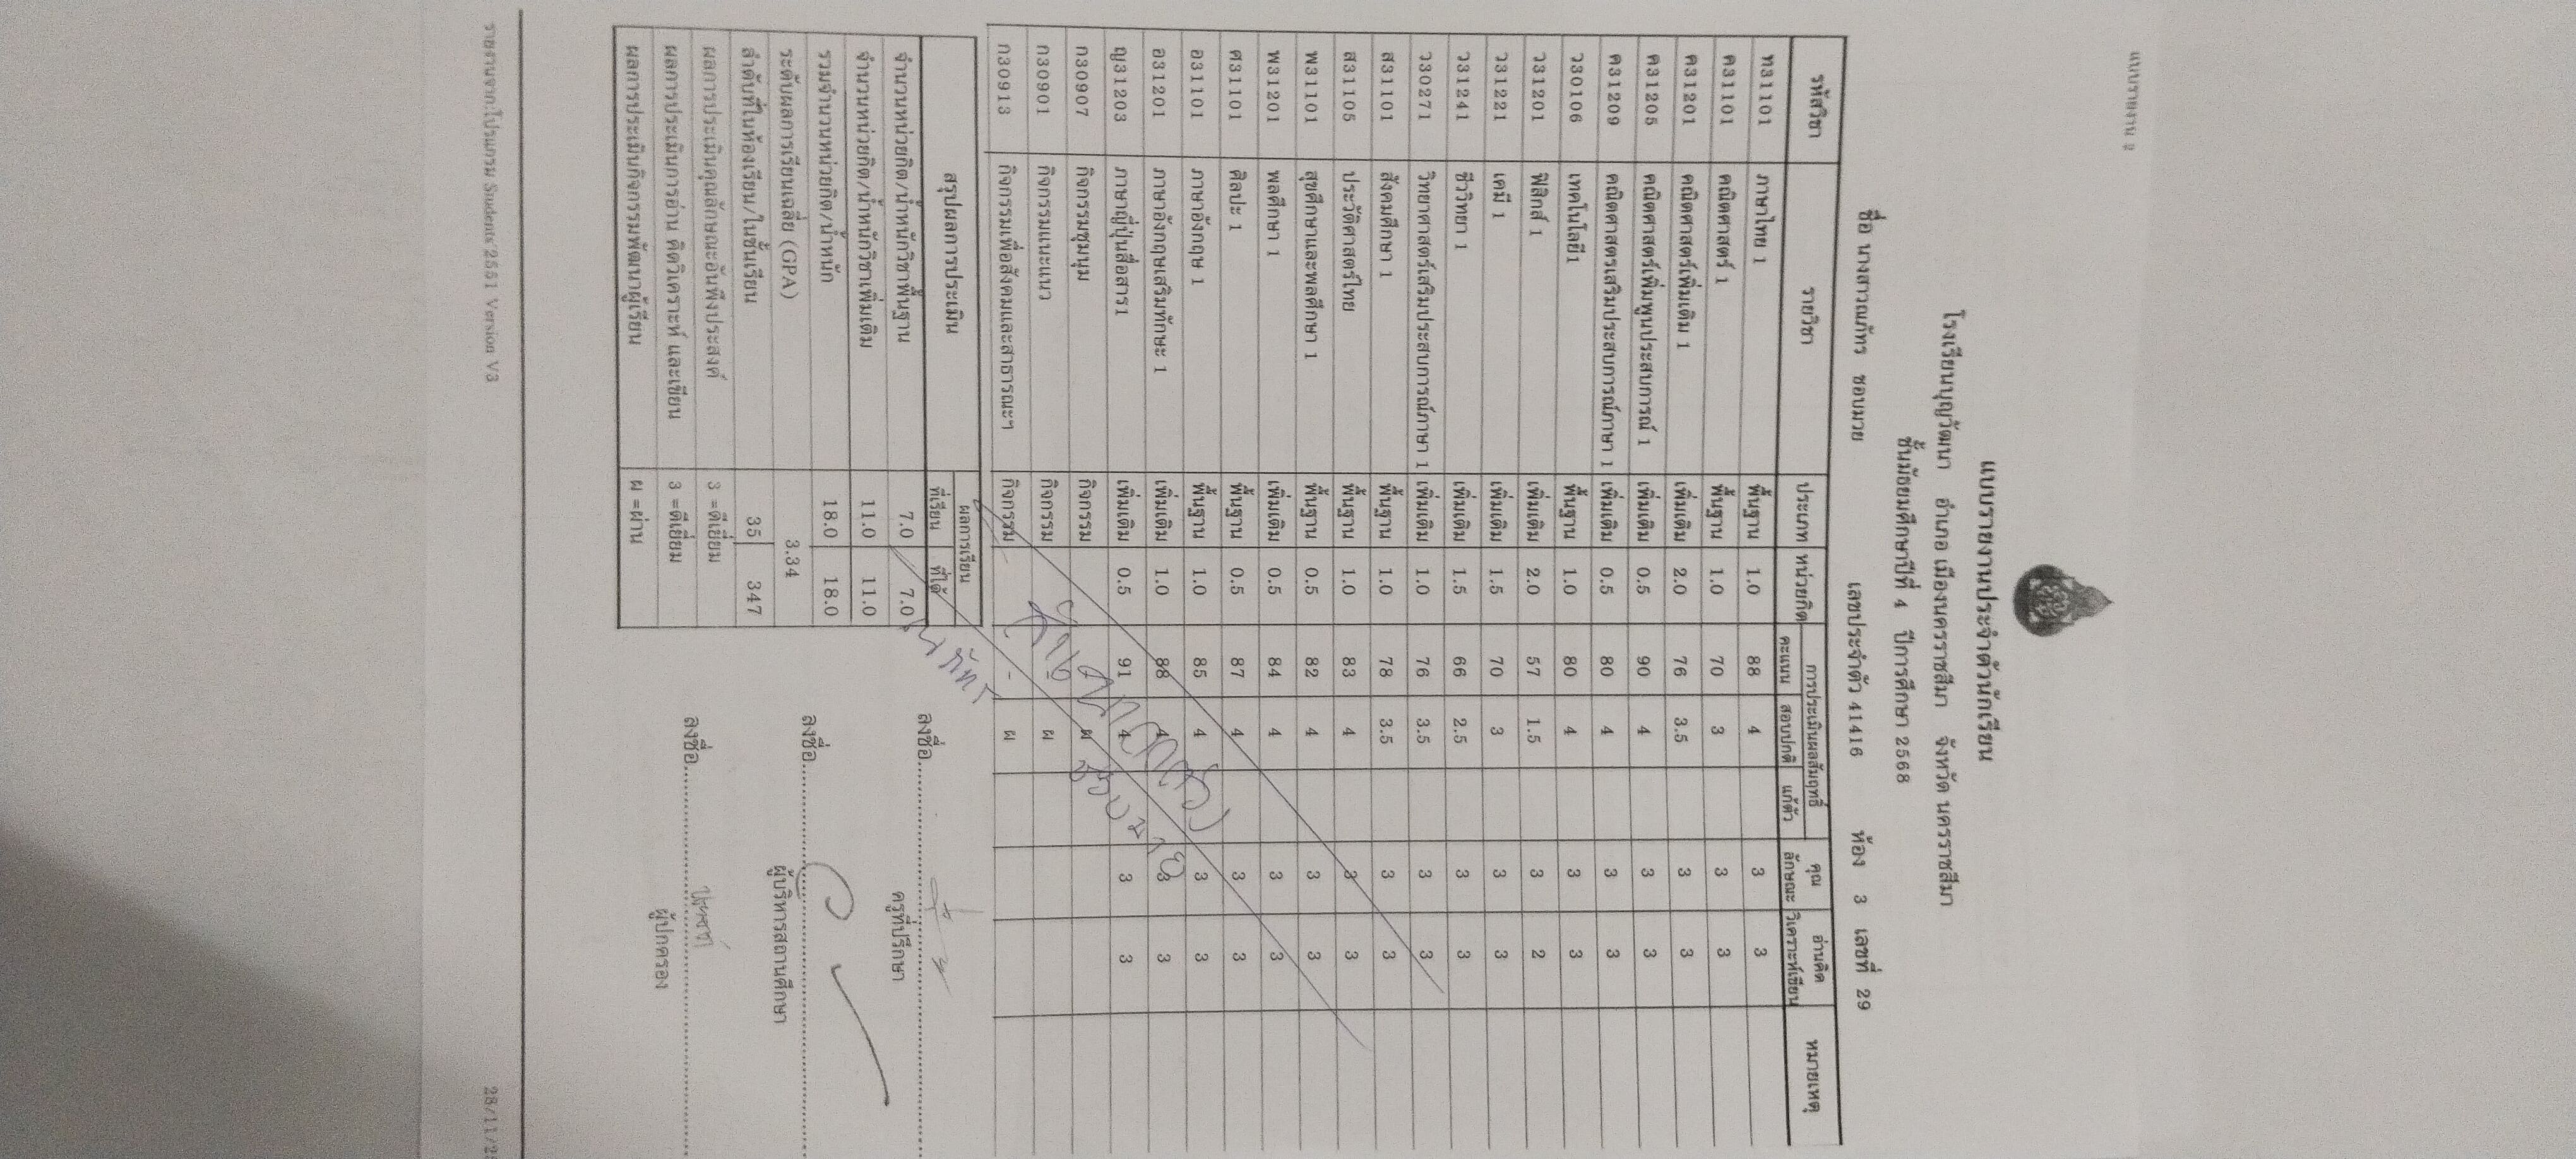 แบบรายงาน
แบบรายงานประจำตัวนักเรียน
โรงเรียนบุญวัฒนา อำเภอ เมืองนครราชสีมา จังหวัด นครราชสีมา
ชั้นมัธยมศึกษาปีที่ 4 ปีการศึกษา 2568
ชื่อ นางสาวณภัทร ชอบมวย เลขประจำตัว 41416 ห้อง 3 เลขที่ 29
รหัสวิชา รายวิชา ประเภท หน่วยกิต การประเมินผลสัมฤทธิ์ คุณ อ่านคิด หมายเหตุ
คะแนน สอบปกติ แก้ตัว ลักษณะ วิเคราะห์เขียน
ท31101 ภาษาไทย 1 พื้นฐาน 1.0 88 4 3 3
ค31101 คณิตศาสตร์ 1 พื้นฐาน 1.0 70 3 3 3
ค31201 คณิตศาสตร์เพิ่มเติม 1 เพิ่มเติม 2.0 76 3.5 3 3
ค31205 คณิตศาสตร์เพิ่มพูนประสบการณ์ 1 เพิ่มเติม 0.5 90 4 3 3
ค31209 คณิตศาสตรเสริมประสบการณ์ภาษา 1 เพิ่มเติม 0.5 80 4 3 3
ว30106 เทคโนโลยี1 พื้นฐาน 1.0 80 4 3 3
ว31201 ฟิสิกส์ 1 เพิ่มเติม 2.0 57 1.5 3 2
ว31221 เคมี 1 เพิ่มเติม 1.5 70 3 3 3
ว31241 ชีววิทยา 1 เพิ่มเติม 1.5 66 2.5 3 3
ว30271 วิทยาศาสตร์เสริมประสบการณ์ภาษา 1 เพิ่มเติม 1.0 76 3.5 3 3
ส31101 สังคมศึกษา 1 พื้นฐาน 1.0 78 3.5 3 3
ส31105 ประวัติศาสตร์ไทย พื้นฐาน 1.0 83 4 3 3
พ31101 สุขศึกษาและพลศึกษา 1 พื้นฐาน 0.5 82 4 3 3
พ31201 พลศึกษา 1 เพิ่มเติม 0.5 84 4 3 3
ศ31101 ศิลปะ 1 พื้นฐาน 0.5 87 4 3 3
อ31101 ภาษาอังกฤษ 1 พื้นฐาน 1.0 85 4 3 3
อ31201 ภาษาอังกฤษเสริมทักษะ 1 เพิ่มเติม 1.0 88 4 3 3
ญ31203 ภาษาญี่ปุ่นสื่อสาร1 เพิ่มเติม 0.5 91 4 3 3
ก30907 กิจกรรมชุมนุม กิจกรรม ผ
ก30901 กิจกรรมแนะแนว กิจกรรม - ผ
ก30913 กิจกรรมเพื่อสังคมและสาธารณะฯ กิจกรรม - ผ
สรุปผลการประเมิน ผลการเรียน
ที่เรียน ที่ได้
จำนวนหน่วยกิต/น้ำหนักวิชาพื้นฐาน 7.0 7.0
จำนวนหน่วยกิต/น้ำหนักวิชาเพิ่มเติม 11.0 11.0
รวมจำนวนหน่วยกิต/น้ำหนัก 18.0 18.0
ระดับผลการเรียนเฉลี่ย (GPA) 3.34
ลำดับที่ในห้องเรียน/ในชั้นเรียน 35 347
ผลการประเมินคุณลักษณะอันพึงประสงค์ 3 =ดีเยี่ยม
ผลการประเมินการอ่าน คิดวิเคราะห์ และเขียน 3 =ดีเยี่ยม
ผลการประเมินกิจกรรมพัฒนาผู้เรียน ผ =ผ่าน
ลงชื่อ
ครูที่ปรึกษา
ลงชื่อ
ผู้บริหารสถานศึกษา
ลงชื่อ
ผู้ปกครอง
รายงานจาก:โปรแกรม Students'2551 Version V3